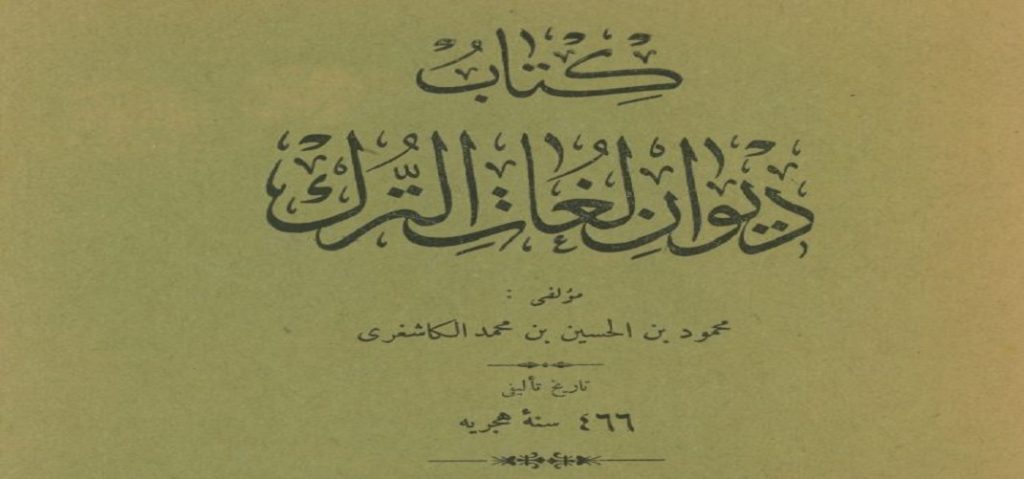 كِتَابُ
ديوان لُغات التُّرك
مؤلفى :
محمود بن الحسين بن محمد الكاشغرى
تاريخ تأليفى
٤٦٦ سنۀ هجريه